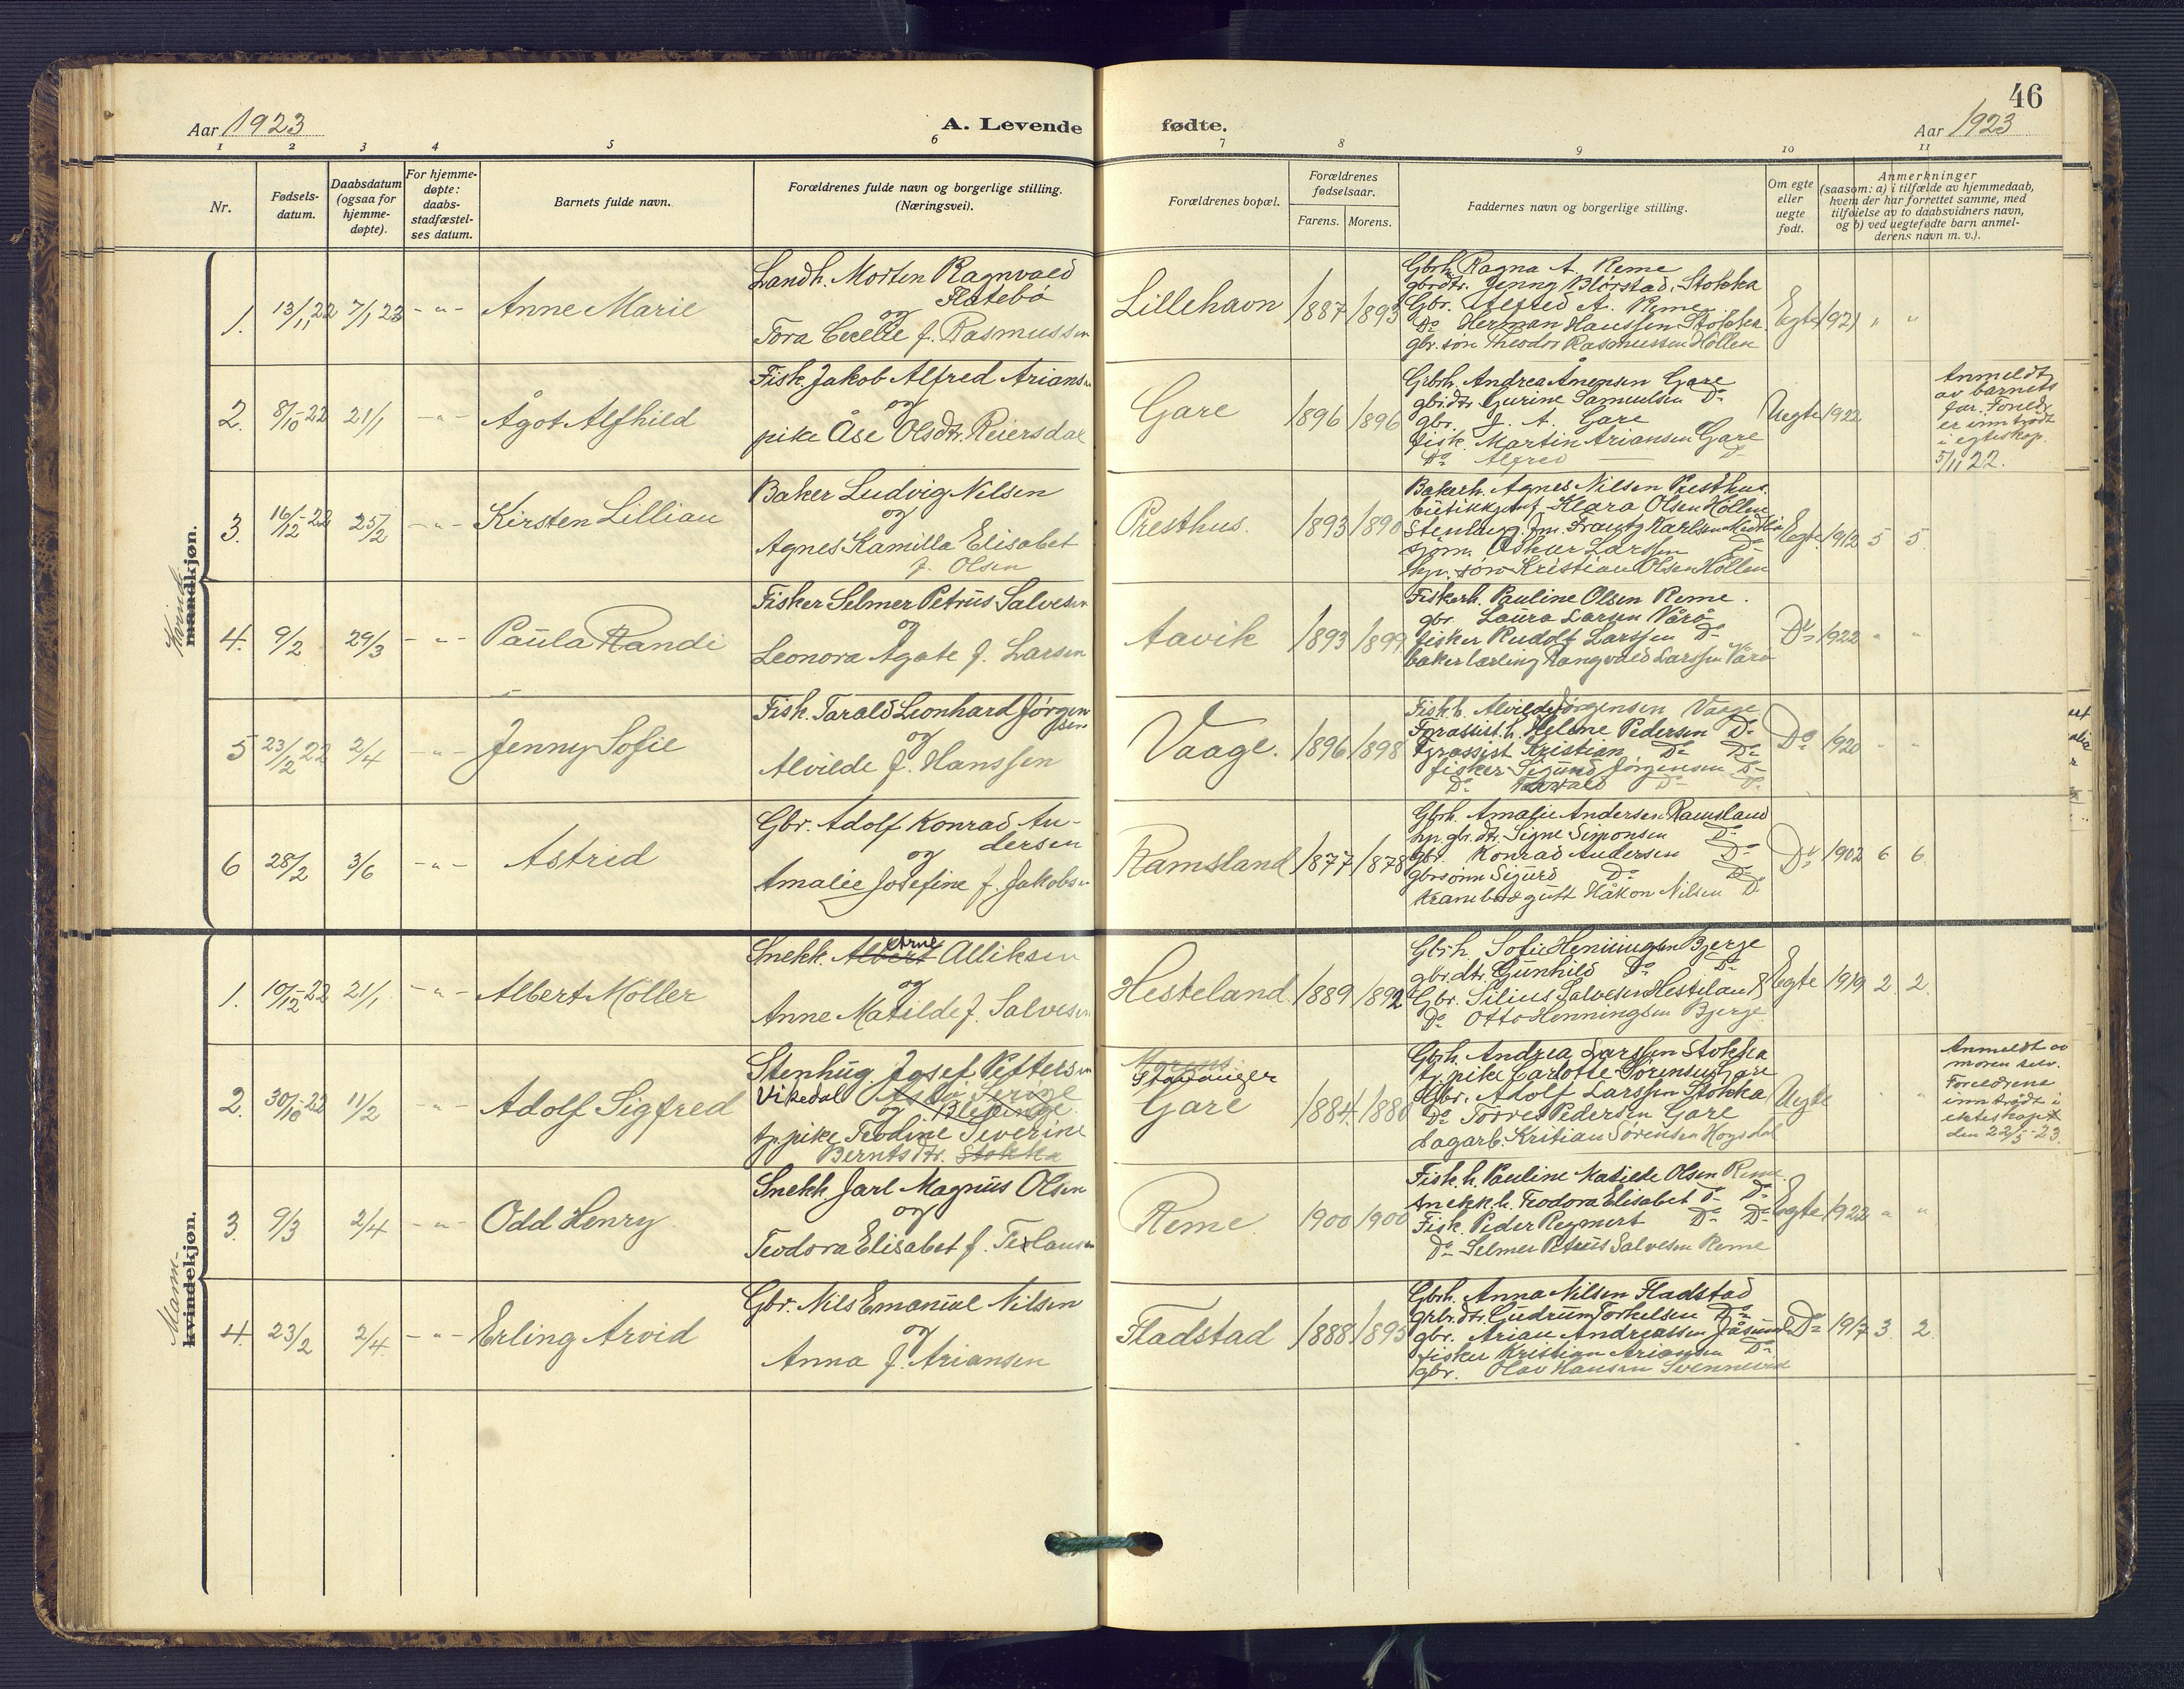 46
Aar 1923
A. Levende
fødte.
Aar 1923
1 2 3 4 5 6 7 8 9 10 11
Nr.
Fødsels-
datum.
Daabsdatum
(ogsaa for
hjemme-
døpte).
For hjemme-
døpte:
daabs-
stadfæstel-
ses datum.
Barnets fulde navn.
Forældrenes fulde navn og borgerlige stilling.
(Næringsvei).
Forældrenes bopæl.
Forældrenes
fødselsaar.
Farens. Morens.
Faddernes navn og borgerlige stilling.
Om egte
eller
uegte
født.
Anmerkninger
(saasom: a) i tilfælde av hjemmedaab,
hvem der har forrettet samme, med
tilføielse av to daabsvidners navn,
og b) ved uegtefødte barn anmel-
derens navn m. v.).
Kvinde-
mandkjøn.
1. 13/11 22 7/1 23 - " - Anne Marie
Landh. Morten Ragnvald
Flatebø
og
Tora Cecelie f. Rasmussen
Lillehavn 1887 1893
Gbrh. Ragna A. Reme
gbrdtr. Jenny Blørstad, Stokka
Gbr. Alfred A. Reme
Do Herman Hanssen Stokka
gbr. søn Theodor Rasmussen Høllen
Egte 1921 " "
2. 8/10-22 21/1 - " - Ågot Alfhild
Fisk. Jakob Alfred Ariansen
og
pike Åse Olsdtr. Reiersdal
Gare 1896 1896
Gbrh. Andrea Åmensen Gare
gbr.dtr. Gurine Samuelsen Do
gbr. J. A. Gare
fisk. Martin Ariansen Gare
Do Alfred — Do
Uegte 1922
Anmeldt
av barnets
far. Foreldr.
er inntrådt
i egteskap.
5/11 22.
3. 16/12-22 25/2 - " - Kirsten Lillian
Baker Ludvig Nilsen
og
Agnes Kamilla Elisabet
f. Olsen
Presthus. 1893 1890
Bakerh. Agnes Nilsen Presthus.
butikk Klara Olsen Høllen
Stenhug. Frantz Karlsen
sjøm. Oskar Larssen Do
søn Kristian Olsen Høllen
Egte 1912 5 5
4. 9/2 29/3 - " - Paula Randi
Fisker Selmer Petrus Salvesen
og
Leonora Agate f. Larsen
Aavik 1893 1899
Fiskerh. Pauline Olsen Reme.
gbr. Laura Larsen Vårø
fisker Rudolf Larssen Do
bakerlærling Rangvald Larssen Vårø
Do 1922 " "
5 23/2 22 2/4 - " - Jenny Sofie
Fisk. Tarald Leonhard Jørgen
sen
og
Alvilde f. Hanssen
Vaage. 1896 1898
Fisk.h. Alvilde Jørgensen Vaage
Fyrassist.h. Helene Pedersen Do
fyrassist Kristian Do Do
fisker Sigurd Jørgensen Do
Do Torvald Do Do
Do 1920 " "
6 28/2 3/6 - " - Astrid
Gbr. Adolf Konrad An-
dersen
og
Amalie Josefine f. Jakobsen
Ramsland 1877 1878
Gbrh. Amalie Andersen Ramsland
hp. gbr.dtr. Signe Simonsen Do
gbr. Konrad Andersen Do
gbrsønn Sigurd Do Do
Krambodgutt Håkon Nilsen Do
Do 1902 6 6
Mann-
kvindekjøn.
1. 10/12-22 21/1 - " - Albert Møller
Arne
Snekk. Albert Alliksen
og
Anne Matilde f. Salvesen
Hesteland 1889 1892
Gbrh. Sofie Henningsen Bjerge
gbrdtr. Gunhild Do Do
Gbr. Silius Salvesen Hesteland
Do Otto Henningsen Bjerge
Egte 1919 2 2.
2. 30/10-22 11/2 - " - Adolf Sigfred
Stenhug. Josef Pettersen
Vikedal
og Blekinge
tj.pike Teodine Severine
Berntsdtr. Stokka
Morens:
Stavanger
Gare 1884. 1880
Gbrh. Andrea Larssen Stokka
tj. pike Carlotte Sørensen Gare
Gbr. Adolf Larssen Stokka
Do Torres Pedersen Gare
Dagarb. Kristian Sørensen Høgsdal
Uegte " "
Anmeldt av
moren selv.
Foreldrene
inntrådt i
ekteskap
den 22/5-23.
3. 9/3 2/4 - " - Odd Henry
Snekk. Jarl Magnus Olsen
og
Teodora Elisabet f. Terlausen
Reme 1900 1900
Fisk.h. Pauline Matilde Olsen Reme
Snekk.h. Teodora Elisabet Do Do
Fisk. Peder Regmert Do Do
Do Selmer Petrus Salvesen Reme
Egte 1922 " "
4. 23/2 2/4 - " - Erling Arvid
Gbr. Nils Emanuel Nilsen
og
Anna f. Ariansen
Fladstad 1888 1895
Gbrh. Anna Nilsen Fladstad
gbr.dtr. Gudrun Torkelsen Do
gbr. Arian Andreassen Jåsund
fisker Kristian Ariansen Do
gbr. Olav Hansen Svennevik
Do 1917 3. 2.